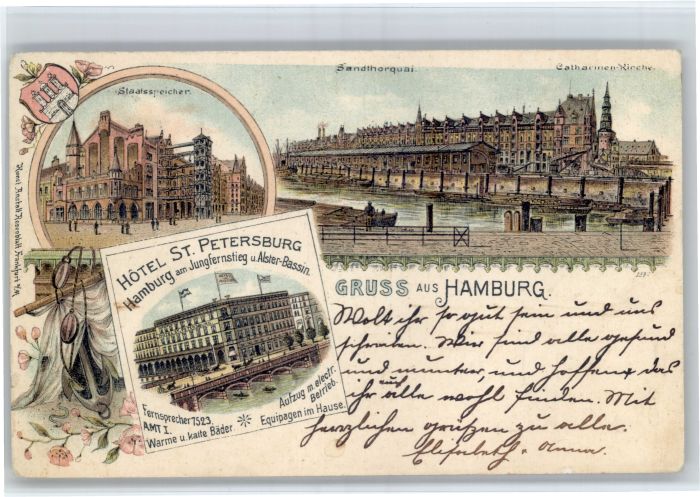 Staatsspeicher.
Sandthorquai.
Catharinen-Kirche.
Kunst Anstalt Rosenblatt Frankfurt a/M.
HÔTEL ST. PETERSBURG
Hamburg am Jungfernstieg u. Alster-Bassin.
Fernsprecher 7523.
AMT I.
Warme u. kalte Bäder.
Aufzug m. electr.
Betrieb.
Equipagen im Hause.
GRUSS AUS HAMBURG.
Wolt ihr so gut sein und uns
schreiben. Wir sind alle gesund
und munter, und hoffen, das
ihr auch alle wohl finden. Mit
herzlichen grüßen zu alle.
Elisabeth u. Anna.